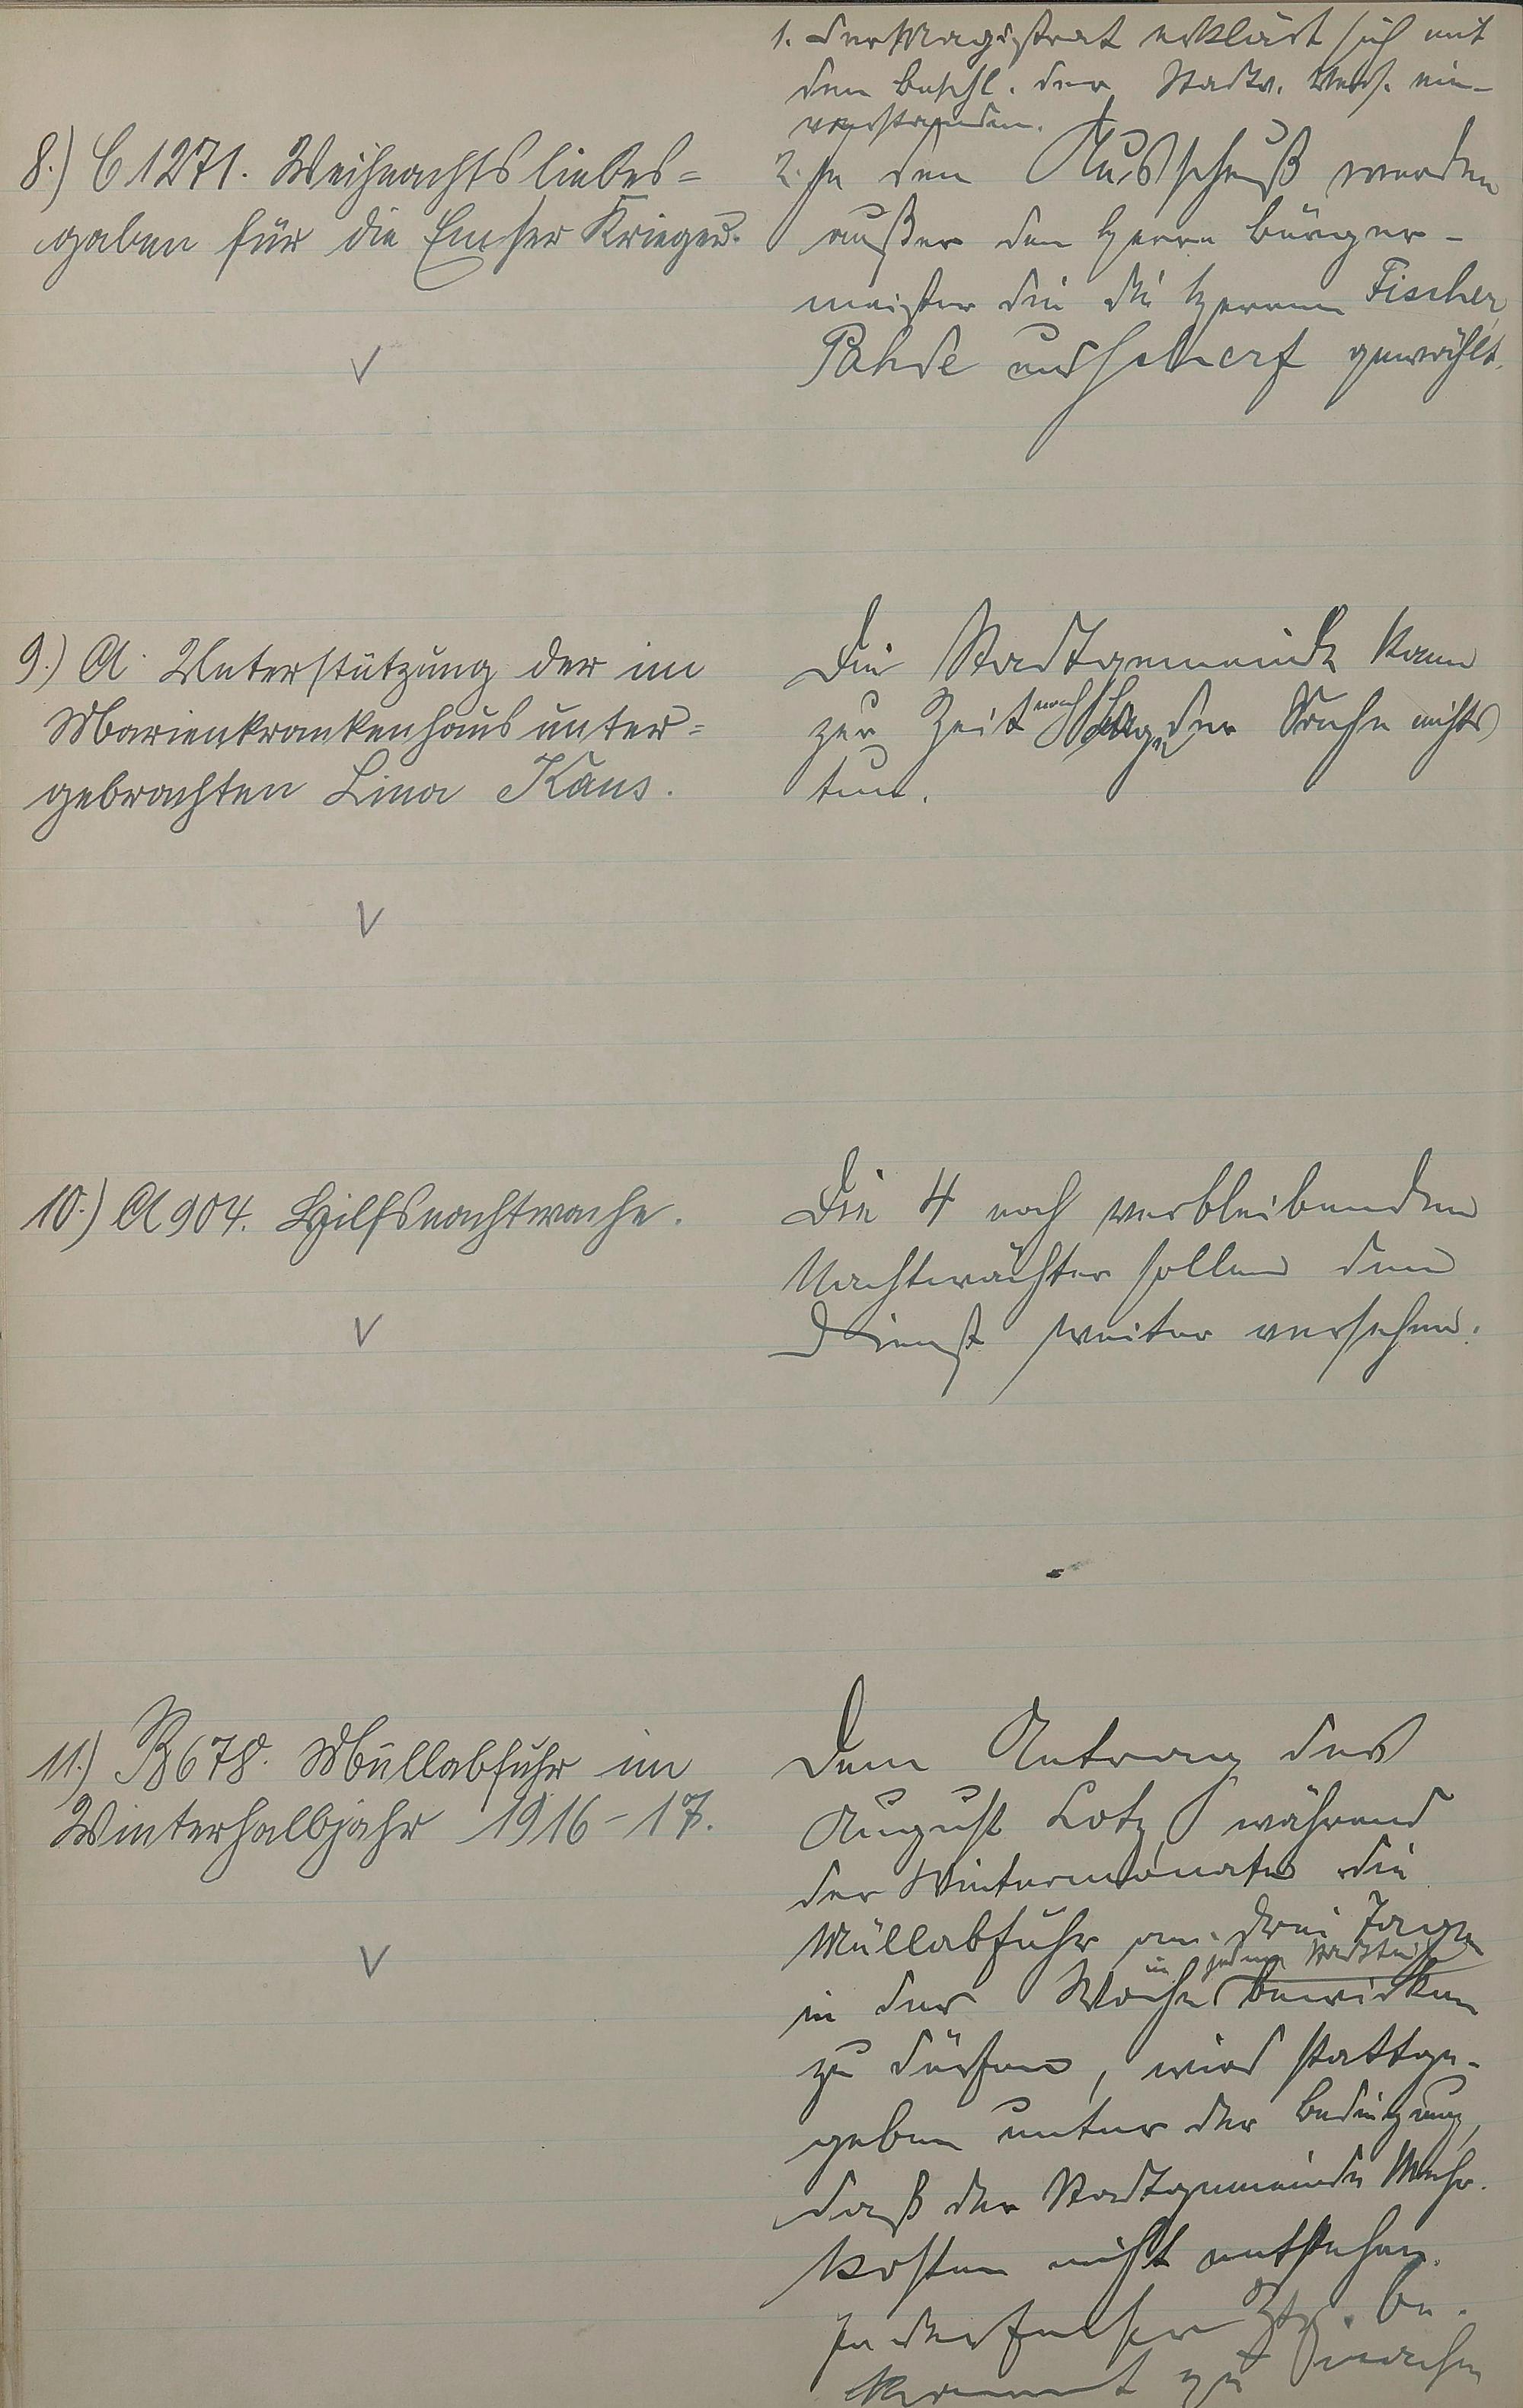 8.) C 1271. Weihnachtsliebes=
gaben für die Emser Krieger.
1. Der Magistrat erklärt sich mit
dem Beschl. der Stadtv. Vers. ein-
verstanden.
2. In den Ausschuß werden
außer dem Herrn Bürger-
meister die die Herren Fischer,
Pahde und Scherf gewählt.
9.) A. Unterstützung der im
Marienkrankenhaus unter=
gebrachten Lina Kaus.
Die Stadtgemeinde kann
zur Zeit nach Lage der Sache nichts
tun.
10.) A 904. Hilfsnachtwache.
Die 4 noch verbleibenden
Nachtwächter sollen den
Dienst weiter versehen.
11.) B 678. Müllabfuhr im
Winterhalbjahr 1916-17.
Dem Antrag des
August Lotz, während
der Wintermonate die
Müllabfuhr an drei Tagen
in der Woche in jedem Stadtteil bewirken
zu dürfen, wird stattge-
geben unter der Bedingung,
daß der Stadtgemeinde Mehr-
kosten nicht entstehen.
In der Emser Ztg. be-
kannt zu machen